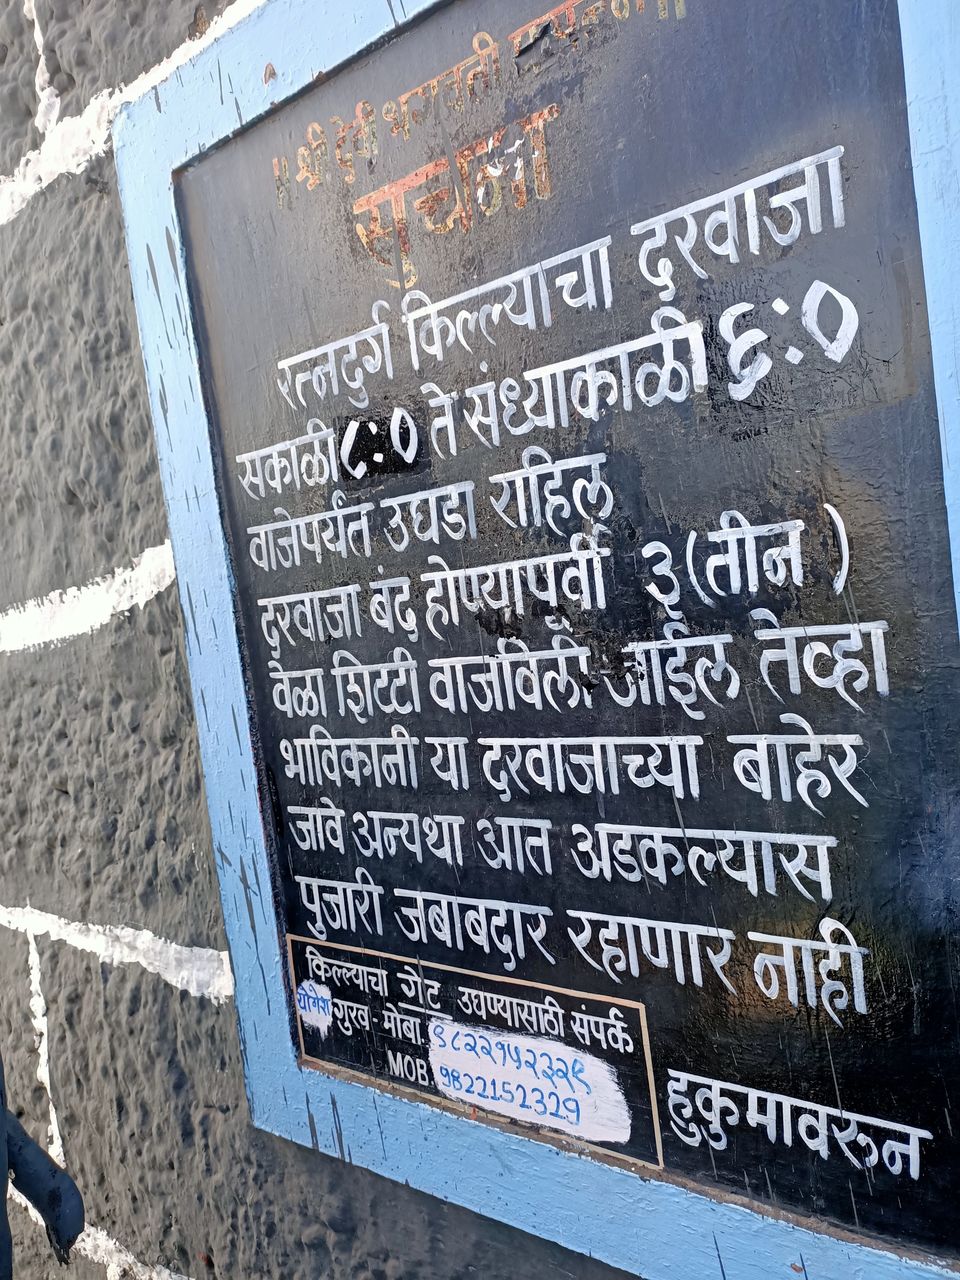 ॥ श्री देवी भगवती
सुचना
रत्नदुर्ग किल्ल्याचा दरवाजा
सकाळी ८:० ते संध्याकाळी ६:०
वाजेपर्यंत उघडा राहिल
दरवाजा बंद होण्यापूर्वी ३ (तीन )
वेळा शिटटी वाजविली जाईल तेव्हा
भाविकानी या दरवाजाच्या बाहेर
जावे अन्यथा आत अडकल्यास
पुजारी जबाबदार रहाणार नाही
किल्ल्याचा गेट उघण्यासाठी संपर्क
योगेश गुरव - मोबा. ९८२२१५२३२९
MOB. 9822152329
हुकुमावरून